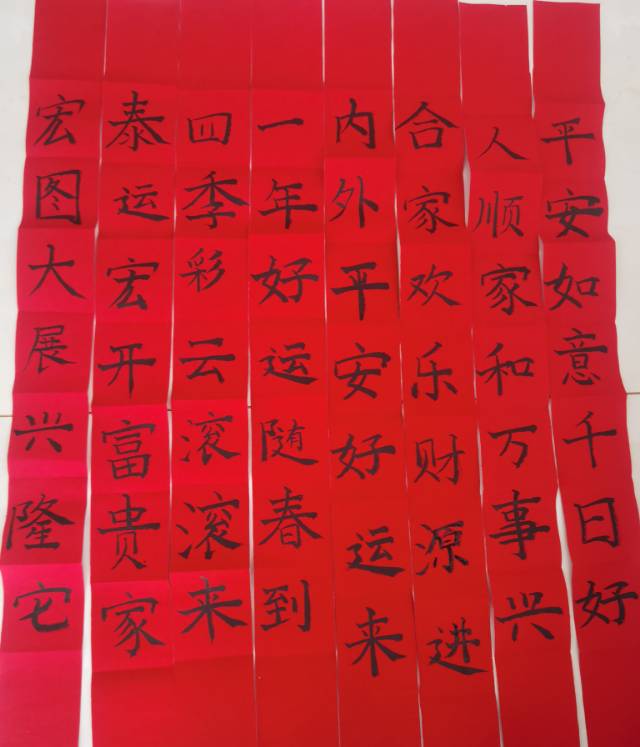 平安如意千日好
人顺家和万事兴
合家欢乐财源进
内外平安好运来
一年好运随春到
四季彩云滚滚来
泰运宏开富贵家
宏图大展兴隆宅